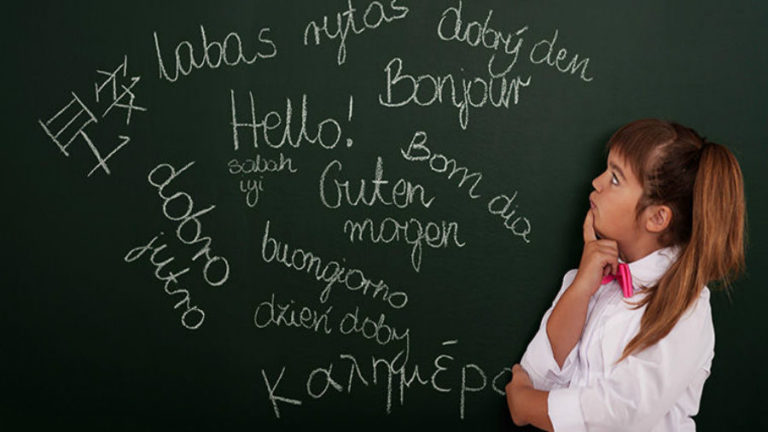 labas rytas
dobrý den
Bonjour
Hello!
sabah
iyi
Bom dia
Guten
morgen
dobro
jutro
buongiorno
dzień dobry
Καλημέρα